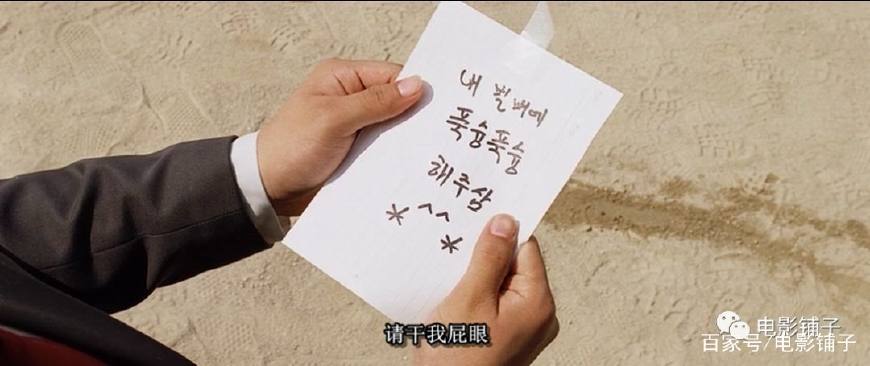 내 발바에
푹슝푹슝
해주삼
* ^^ *
请干我屁眼
电影铺子
百家号/电影铺子